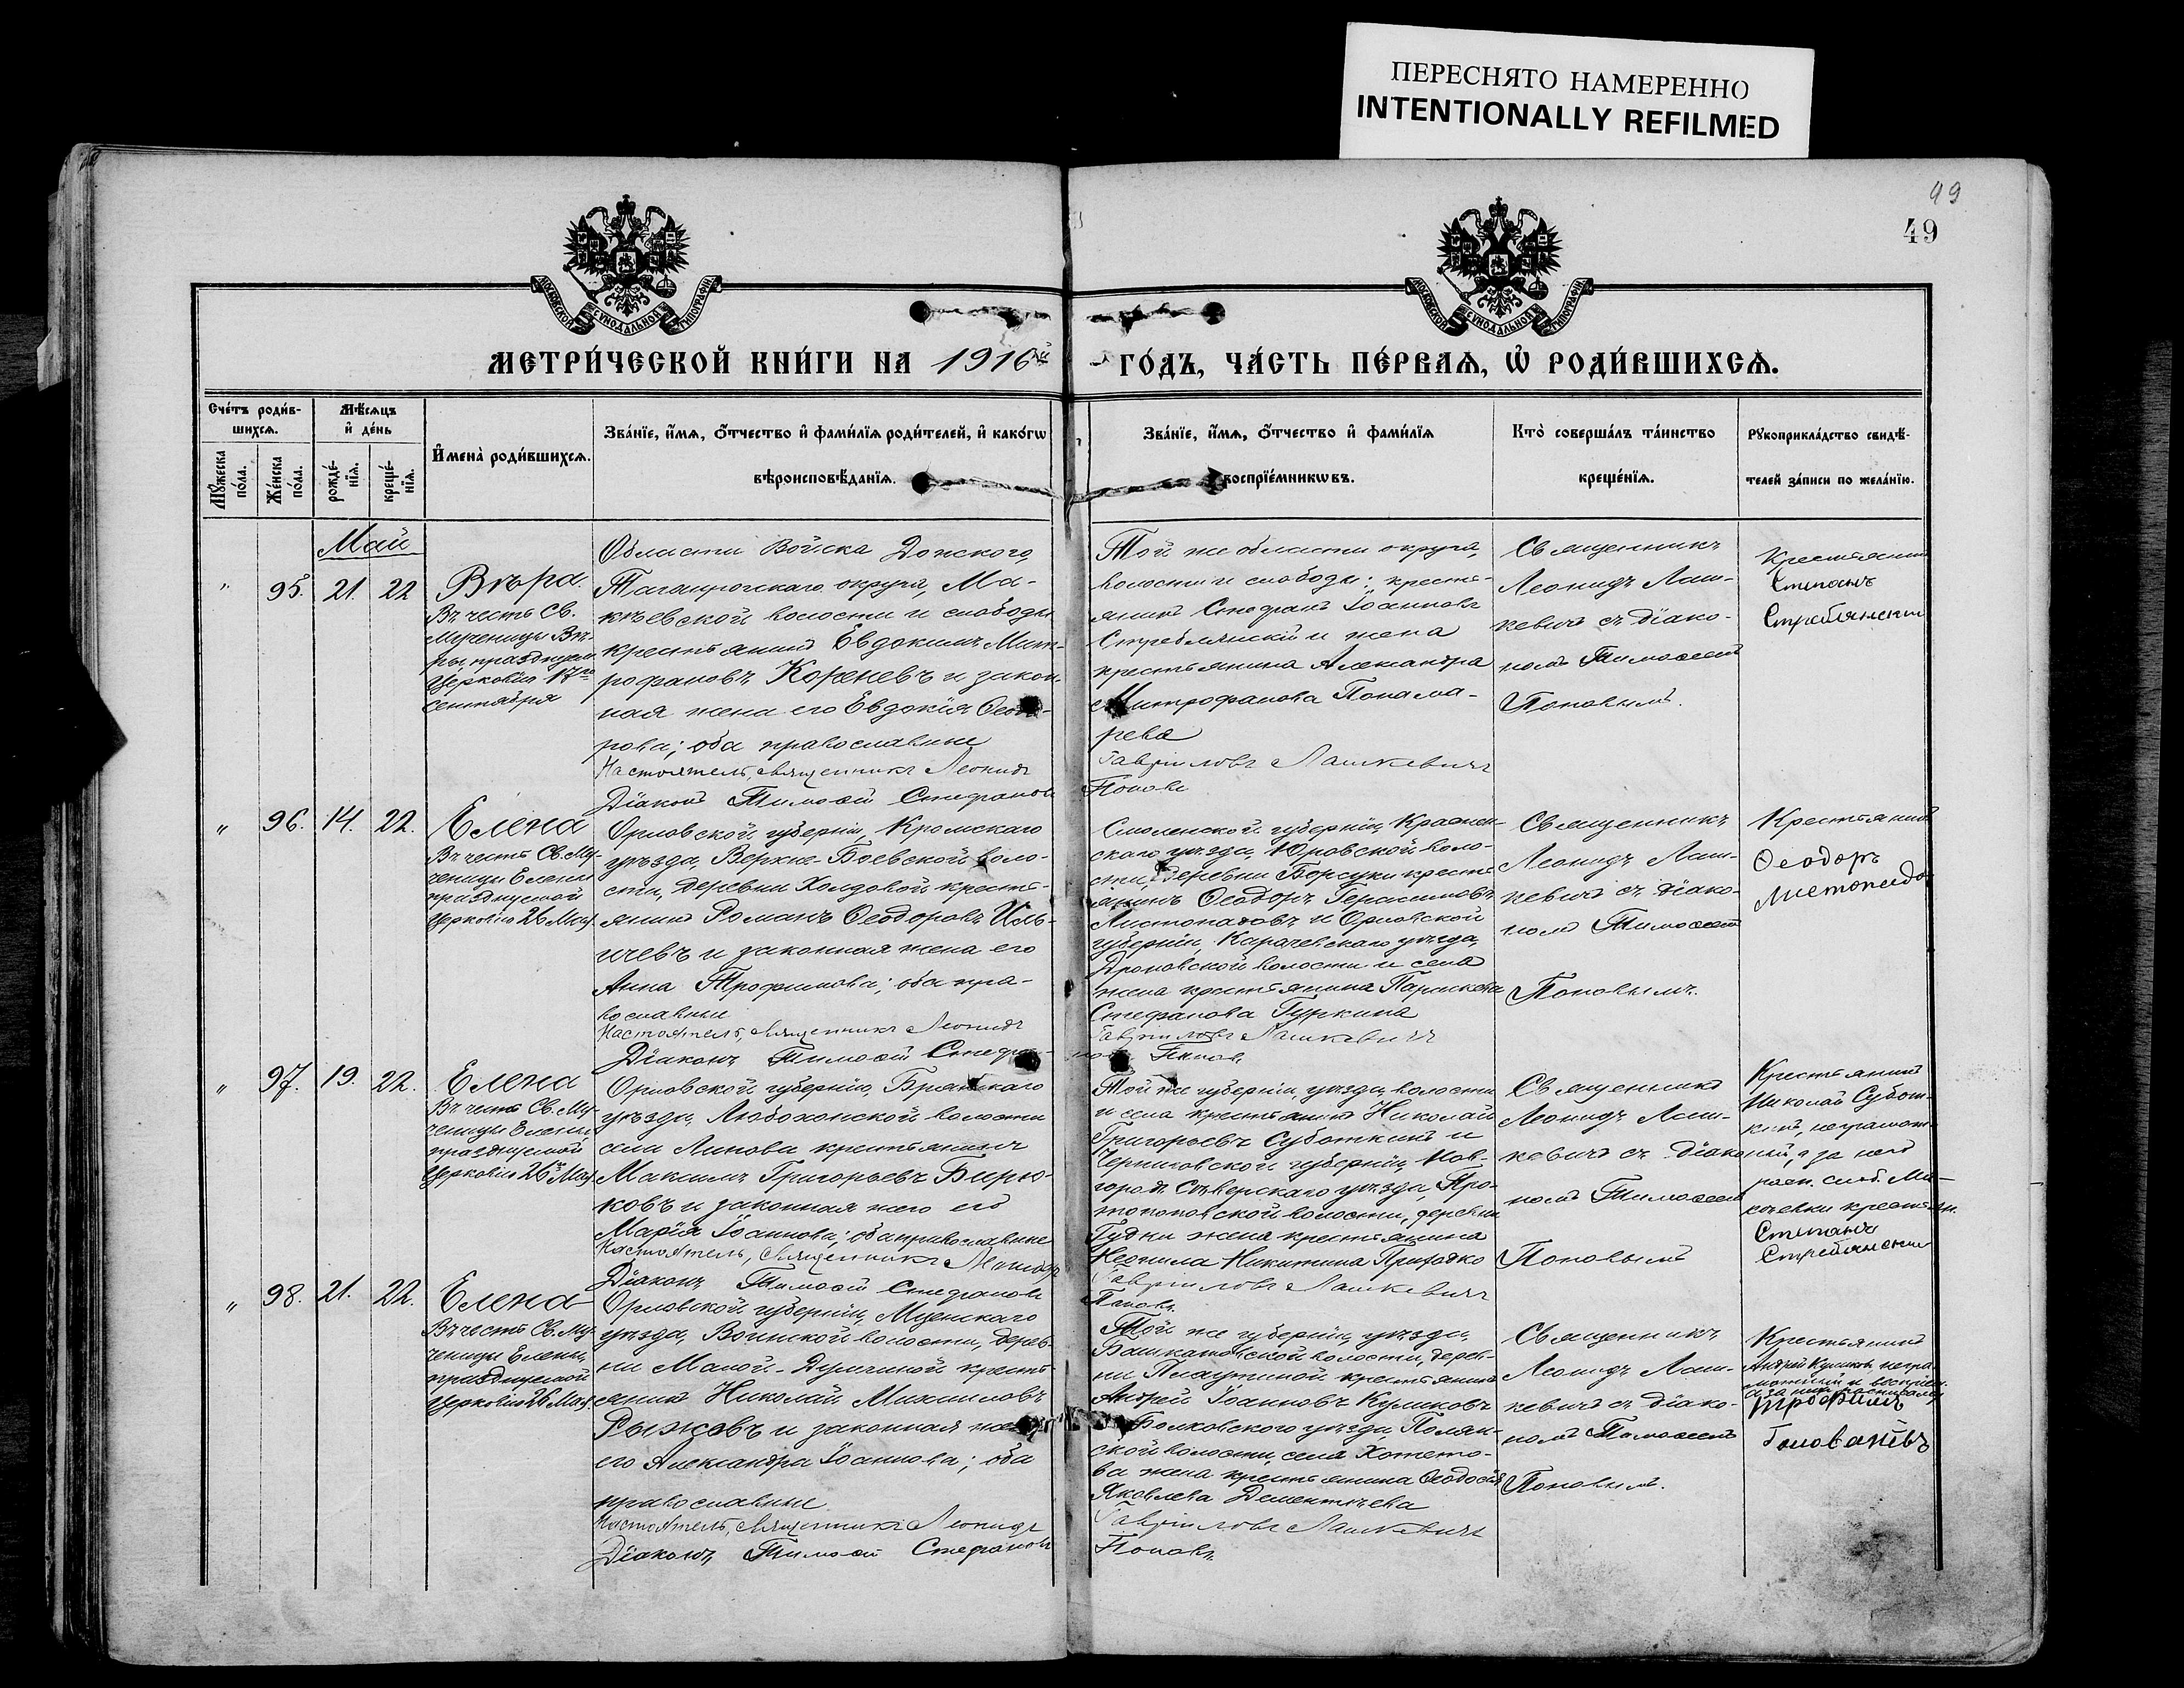 ПЕРЕСНЯТО НАМЕРЕННО
INTENTIONALLY REFILMED
49
49
МОСКОВСКОЙ СУНОДАЛЬНОЙ ТИПОГРАФІИ
МОСКОВСКОЙ СУНОДАЛЬНОЙ ТИПОГРАФІИ
МЕТРИ́ЧЕСКОЙ КНИ́ГИ НА 1916й ГО́ДЪ, ЧА́СТЬ ПЕ́РВАѦ, Ѡ҆ РОДИ́ВШИХСѦ.
Сче́тъ роди́в-
шихсѧ.
Мꙋ́жеска по́ла.
Же́нска по́ла.
Мѣ́сѧцъ
и҆ де́нь
рожде́-
нїѧ.
креще́-
нїѧ.
И҆мена̀ роди́вшихсѧ.
Зва́нїе, и҆́мѧ, ѻ҆́тчество и҆ фами́лїѧ роди́телей, и҆ како́гѡ
вѣроисповѣ́данїѧ.
Зва́нїе, и҆́мѧ, ѻ҆́тчество и҆ фами́лїѧ
воспрїе́мникѡвъ.
Кто̀ соверша́лъ та́инство
креще́нїѧ.
Рꙋкоприкла́дство свидѣ́-
телей за́писи по жела́нїю.
Май
" 95. 21. 22
Вѣра.
Въ честь Св.
Мученицы Вѣ-
ры, празднуем.
Церковію 17го
Сентября
Области Войска Донского,
Таганрогскаго округа, Ма-
кѣевской волости и слободы
крестьянинъ Евдокимъ Мит-
рофановъ Кореневъ и закон-
ная жена его Евдокія Ѳеодо-
рова; оба православные
Настоятель, священникъ Леонидъ
Діаконъ Тимоѳей Стефановъ
Той же области округа,
волости и слободы: кресть-
янинъ Стефанъ Іоанновъ
Стреблянскій и жена
крестьянина Александра
Митрофанова Понама-
рева
Гавріиловъ Лашкевичъ
Поповъ
Священникъ
Леонидъ Лаш-
кевичъ съ діако-
номъ Тимоѳеемъ
Поповымъ.
Крестьянинъ
Степанъ
Стреблянский
" 96. 14. 22.
Елена
Въ честь Св. Му-
ченицы Елены
празднуемой
Церковію 26 Мая.
Орловской губерніи, Кромскаго
уѣзда, Верхне-Боевской воло-
сти, деревни Холдовой кресть-
янинъ Романъ Ѳеодоровъ Иль-
ичевъ и законная жена его
Анна Трофимова; оба пра-
вославные
Настоятель, священникъ Леонидъ
Діаконъ Тимоѳей Стефа-
Смоленской губерніи, Краснен-
скаго уѣзда, Юровской воло-
сти, деревни Борсуки кресть-
янинъ Ѳеодоръ Герасимовъ
Листопадовъ и Орловской
губерніи, Карачевскаго уѣзда,
Дроновской волости и села
жена крестьянина Параскева
Стефанова Гуркина
Гавріиловъ Лашкевичъ
новъ Поповъ
Священникъ
Леонидъ Лаш-
кевичъ съ діако-
номъ Тимоѳеемъ
Поповымъ.
Крестьянинъ
Ѳеодоръ
Листопадов
" 97. 19. 22.
Елена
Въ честь Св. Му-
ченицы Елены
празднуемой
Церковію 26 Мая
Орловской губерніи, Брянскаго
уѣзда, Любохонской волости
села крестьянинъ
Максимъ Григорьевъ Бирю-
ковъ и законная жена его
Марія Іоаннова; оба православные
Настоятель, священникъ Леонидъ
Діаконъ Тимоѳей Стефановъ
Той же губерніи, уѣзда, волости
и села крестьянинъ Николай
Григорьевъ Суботкинъ и
Черниговской губерніи, Нов-
городъ-Сѣверскаго уѣзда, Про-
топоповской волости, деревни
жена крестьянина
Неонила Никитина Приходко
Гавріиловъ Лашкевичъ
Поповъ.
Священникъ
Леонидъ Лаш-
кевичъ съ діако-
номъ Тимоѳеемъ
Поповымъ
Крестьянинъ
Николай Субот-
кинъ, неграмот-
ный, а за него
расп. слоб. Ма-
кѣевки крестьян.
Степанъ
Стреблянский
" 98. 21. 22.
Елена
Въ честь Св. Му-
ченицы Елены,
празднуемой
Церковію 26 Мая
Орловской губерніи, Мценскаго
уѣзда, Воинской волости, дерев-
ни Малой-Думчиной кресть-
янинъ Николай Михаиловъ
Рыжовъ и законная жена
его Александра Іоаннова; оба
православные
Настоятель, священникъ Леонидъ
Діаконъ Тимоѳей Стефановъ
Той же губерніи, уѣзда,
Башкатовской волости, дерев-
ни Плаутиной крестьянинъ
Андрей Іоанновъ Куликовъ
Болховского уѣзда, Полян-
ской волости, села Хотето-
ва жена крестьянина Ѳеодосія
Яковлева Дементьева
Гавріиловъ Лашкевичъ
Поповъ.
Священникъ
Леонидъ Лаш-
кевичъ съ діако-
номъ Тимоѳеемъ
Поповымъ.
Крестьянинъ
Андрей Куликовъ негра-
мотный
а за него расписался
Трофимъ
Голованёвъ